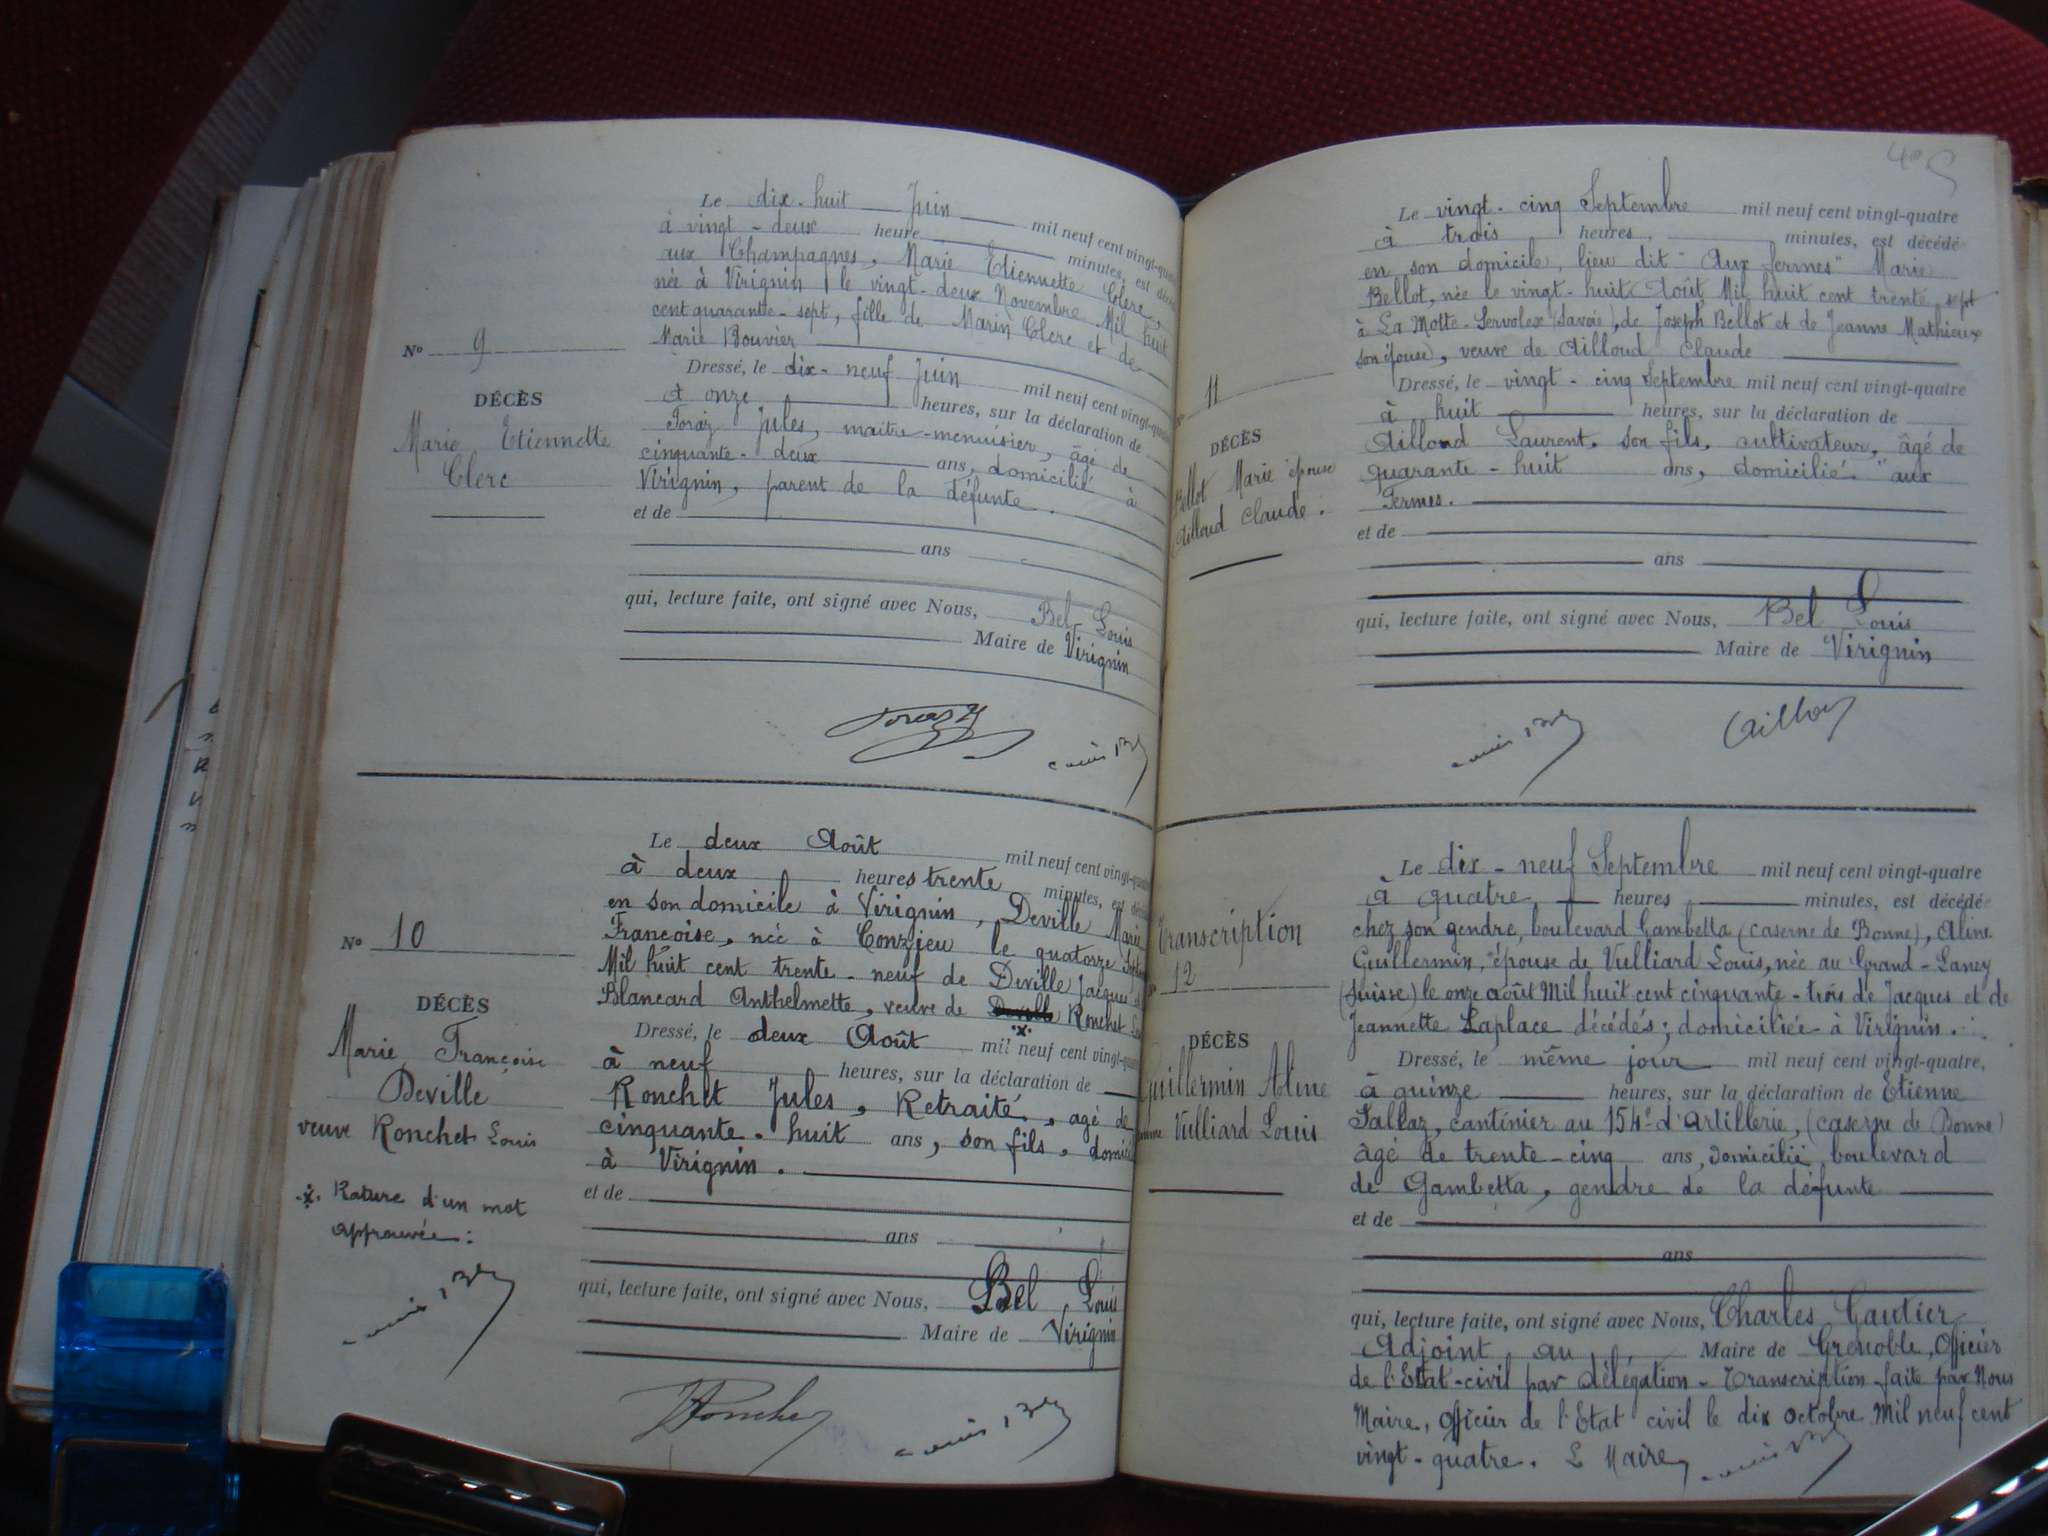 Le dix-huit Juin mil neuf cent vingt-quatre
à vingt-deux heure minutes, est décédé
aux Champagnes, Marie Etiennette Clerc,
née à Virignin le vingt-deux Novembre Mil huit
cent quarante-sept, fille de Marin Clerc et de
Marie Bouvier
Dressé, le dix-neuf Juin mil neuf cent vingt-quatre
à onze heures, sur la déclaration de
Foraz Jules, maitre-menuisier, âgé de
cinquante-deux ans, domicilié à
Virignin, parent de la défunte.
et de
ans
qui, lecture faite, ont signé avec Nous, Bel Louis
Maire de Virignin
No 9
DÉCÈS
Marie Etiennette
Clerc
Foraz J
Louis Bel
Le deux Août mil neuf cent vingt-quatre
à deux heures trente minutes, est décédé
en son domicile à Virignin, Deville Marie
Françoise, née à Conzieu le quatorze
Mil huit cent trente-neuf de Deville Jacques
Blancard Anthelmette, veuve de Deville Ronchet
.x.
Dressé, le deux Août mil neuf cent vingt-quatre
à neuf heures, sur la déclaration de
Ronchet Jules, Retraité, agé de
cinquante-huit ans, son fils, domicilié
à Virignin.
et de
ans
qui, lecture faite, ont signé avec Nous, Bel Louis
Maire de Virignin
No 10
DÉCÈS
Marie Françoise
Deville
veuve Ronchet Louis
.x. Rature d'un mot
approuvée:
Louis Bel
J Ronchet
Louis Bel
Le vingt-cinq Septembre mil neuf cent vingt-quatre
à trois heures, minutes, est décédé
en son domicile, lieu dit "Aux fermes" Marie
Bellot, née le vingt-huit Août Mil huit cent trente sept
à La Motte-Servolex (Savoie), de Joseph Bellot et de Jeanne Mathieux
son épouse), veuve de Ailloud Claude
Dressé, le vingt-cinq Septembre mil neuf cent vingt-quatre
à huit heures, sur la déclaration de
Ailloud Laurent, son fils, cultivateur, âgé de
quarante-huit ans, domicilié "aux
Fermes.
et de
ans
qui, lecture faite, ont signé avec Nous, Bel Louis
Maire de Virignin
11
DÉCÈS
Bellot Marie épouse
Ailloud Claude.
Louis Bel
Aillou
Le dix-neuf Septembre mil neuf cent vingt-quatre
à quatre heures minutes, est décédé
chez son gendre, boulevard Gambetta (caserne de Bonne), Aline
Guillermin, épouse de Vulliard Louis, née au Grand-Lancy
(Suisse) le onze août Mil huit cent cinquante-trois de Jacques et de
Jeannette Laplace décédés; domiciliée à Virignin.
Dressé, le même jour mil neuf cent vingt-quatre,
à quinze heures, sur la déclaration de Etienne
Fallaz, cantinier au 154e d'Artillerie, (caserne de Bonne)
âgé de trente-cinq ans, domicilié boulevard
de Gambetta, gendre de la défunte
et de
ans
qui, lecture faite, ont signé avec Nous, Charles Gautier
Adjoint au Maire de Grenoble, Officier
de l'Etat-civil par délégation - Transcription faite par Nous
Maire, officier de l'Etat civil le dix octobre Mil neuf cent
vingt-quatre. Le Maire, Louis Bel
Transcription
12
DÉCÈS
Guillermin Aline
femme Vulliard Louis